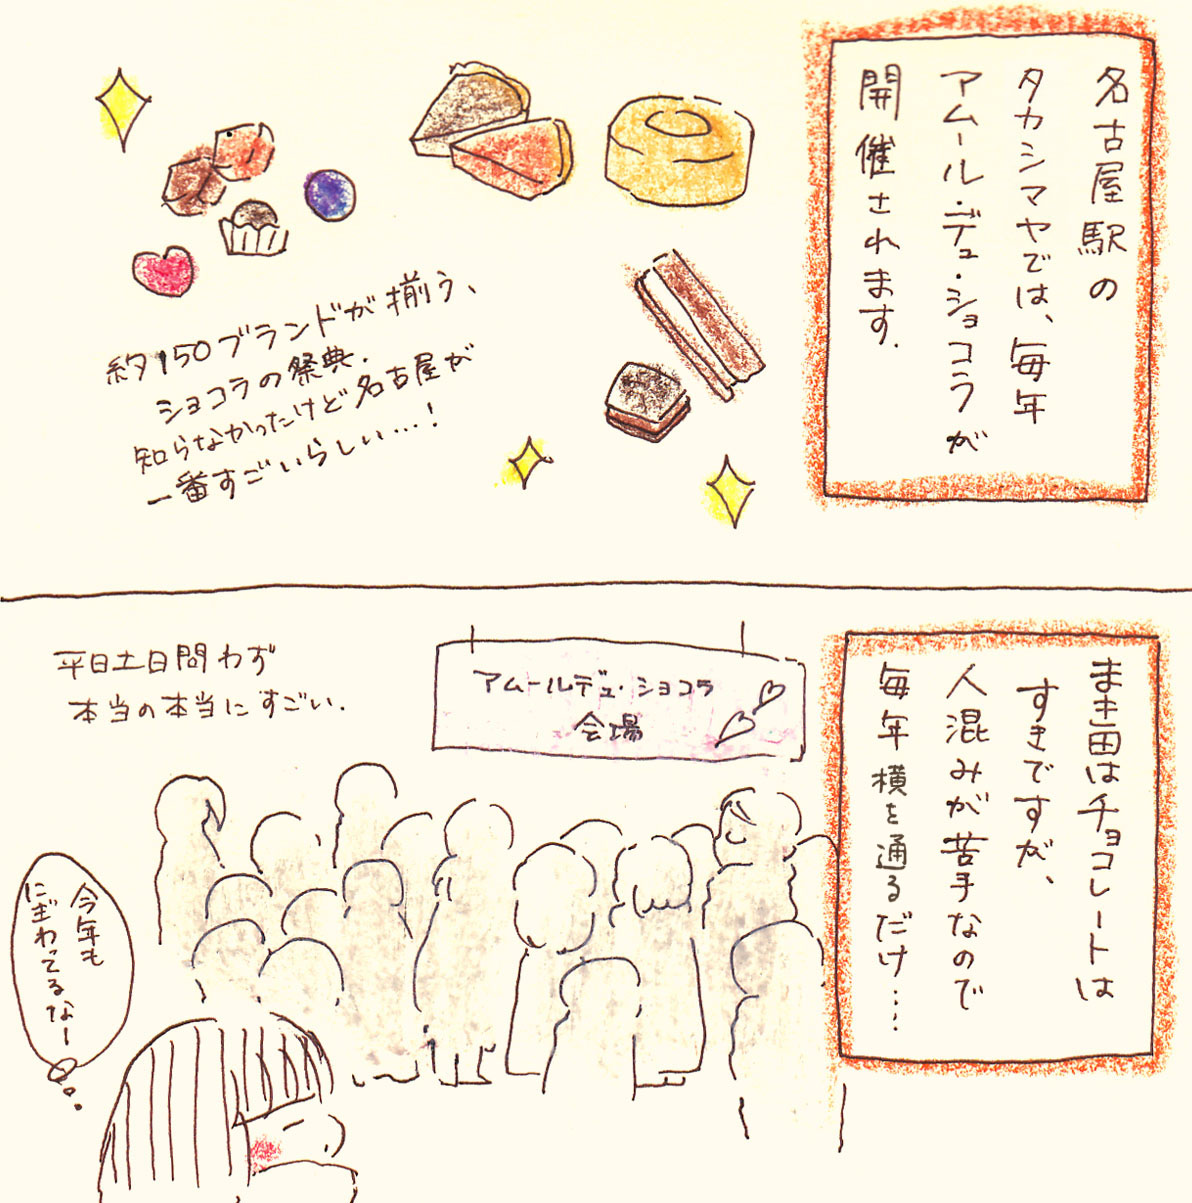 名古屋駅の
タカシマヤでは、毎年
アムール・デュ・ショコラが
開催されます.
約150ブランドが揃う、
ショコラの祭典.
知らなかったけど名古屋が
一番すごいらしい…!
まき田はチョコレートは
すきですが、
人混みが苦手なので
毎年横を通るだけ……
アムールデュ・ショコラ
会場
平日土日問わず
本当の本当にすごい.
今年も
にぎわってるなー